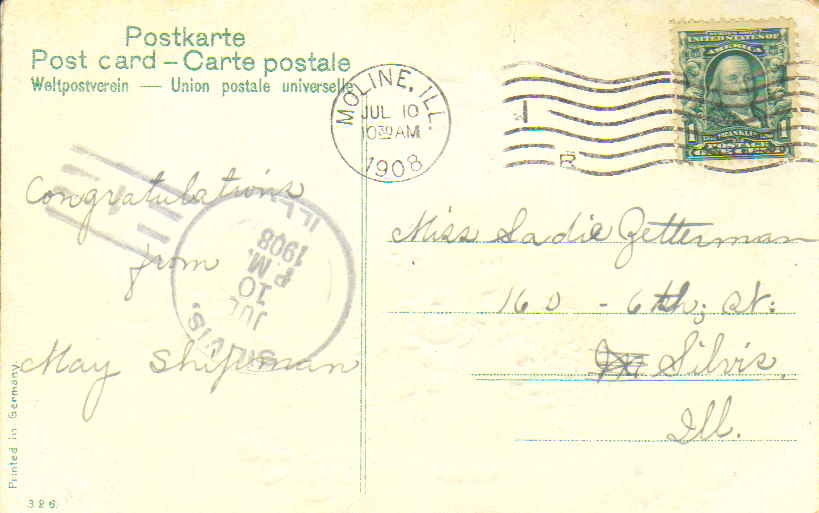 Postkarte
Post card – Carte postale
Weltpostverein — Union postale universelle
MOLINE, ILL.
JUL 10
10 30 AM
1908
1
R
UNITED STATES OF
AMERICA
FRANKLIN
1 POSTAGE 1
Congratulations
from
May Shipman
SILVIS,
JUL
10
P M.
1908
ILL.
Miss Sadie Zetterman
160 - 6th; St:
Silvis,
Ill.
Printed in Germany
326.